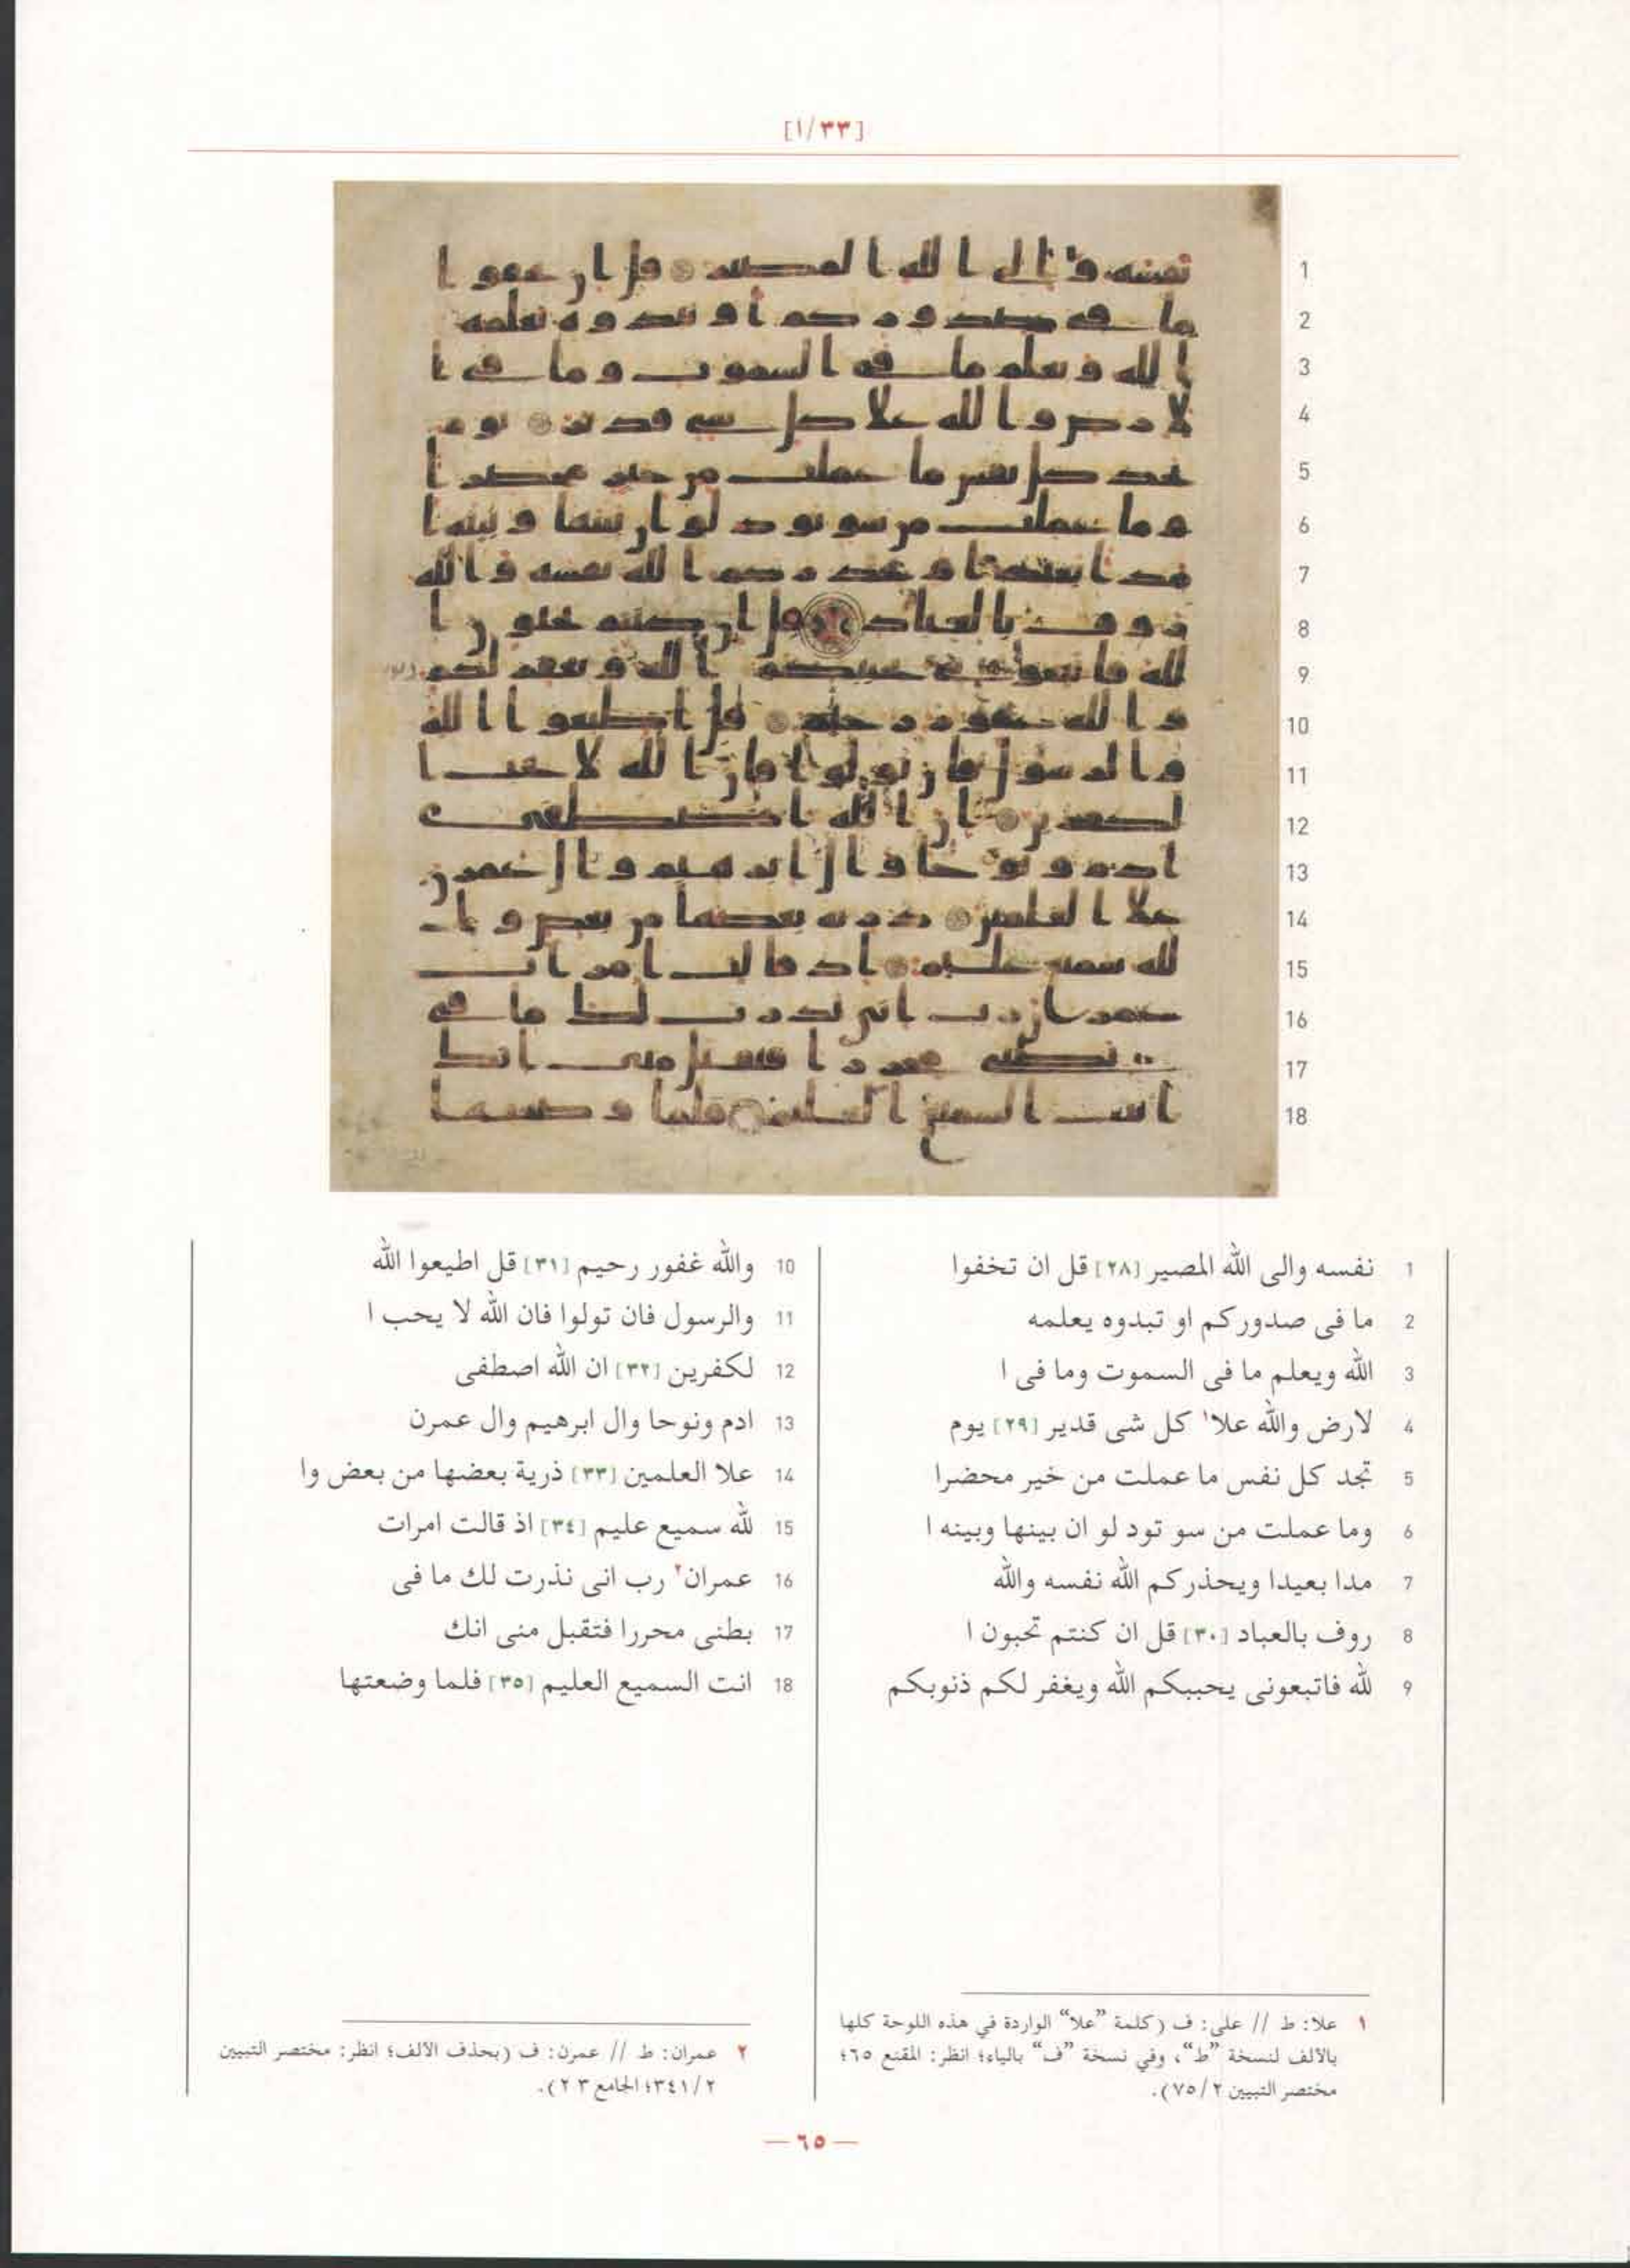 [٣٣/١]
1 نفسه والى الله المصير [٢٨] قل ان تخفوا
2 ما فى صدوركم او تبدوه يعلمه
3 الله ويعلم ما فى السموت وما فى ا
4 لارض والله علا١ كل شى قدير [٢٩] يوم
5 تجد كل نفس ما عملت من خير محضرا
6 وما عملت من سو تود لو ان بينها وبينه ا
7 مدا بعيدا ويحذركم الله نفسه والله
8 روف بالعباد [٣٠] قل ان كنتم تحبون ا
9 لله فاتبعونى يحببكم الله ويغفر لكم ذنوبكم
10 والله غفور رحيم [٣١] قل اطيعوا الله
11 والرسول فان تولوا فان الله لا يحب ا
12 لكفرين [٣٢] ان الله اصطفى
13 ادم ونوحا وال ابرهيم وال عمرن
14 علا العلمين [٣٣] ذرية بعضها من بعض وا
15 لله سميع عليم [٣٤] اذ قالت امرات
16 عمران٢ رب انى نذرت لك ما فى
17 بطنى محررا فتقبل منى انك
18 انت السميع العليم [٣٥] فلما وضعتها
١ علا: ط // على: ف (كلمة ”علا“ الواردة في هذه اللوحة كلها
بالألف لنسخة ”ط“، وفي نسخة ”ف“ بالياء؛ انظر: المقنع ٦٥؛
مختصر التبيين ٢/٧٥).
٢ عمران: ط // عمرن: ف (بحذف الألف؛ انظر: مختصر التبيين
٢/٣٤١؛ الجامع ٢٣).
— ٦٥ —